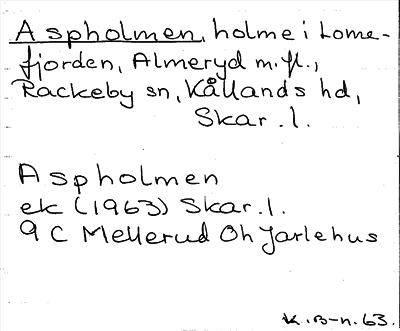 Aspholmen, holme i Lome-
fjorden, Almeryd m.fl.,
Rackeby sn, Kållands hd,
Skar. l.
Aspholmen
ek (1963) Skar. l.
9 C Mellerud Oh Jarlehus
K. B-n. 63.